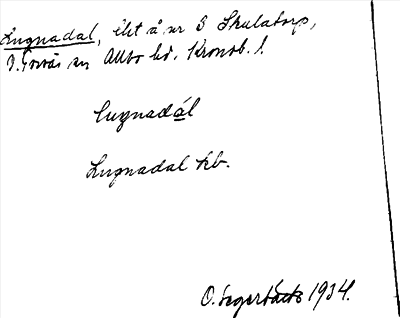 Lugnadal, älst å nr 3 Skulatorp,
V. Torsås sn Allbo hd. Kronob. l.
lugnadál
Lugnadal kb.
O. Segerbäck 1934.